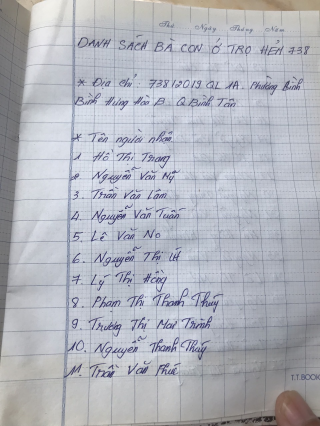 Thứ Ngày Tháng Năm
DANH SÁCH BÀ CON Ở TRỌ HẺM 738
* Địa chỉ: 738/2019 QL 1A. Phường Bình
Bình Hưng Hòa B. Q Bình Tân
* Tên người nhận
1. Hồ Thị Trang
2. Nguyễn Văn Nỹ
3. Trần Văn Lâm
4. Nguyễn Văn Tuấn
5. Lê Văn No
6. Nguyễn Thị Út
7. Lý Thị Hồng
8. Phạm Thị Thanh Thúy
9. Trương Thị Mai Trinh
10. Nguyễn Thanh Thúy
11. Trần Văn Phúc
T.T.BOOK